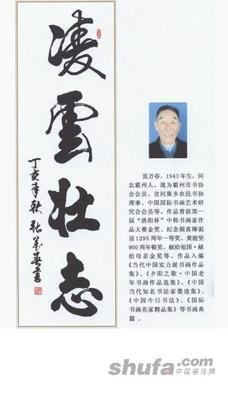 凌雲壮志
丁亥年秋 张万春書
张万春，1943年生，河
北霸州人。现为霸州市书协
会会员、岔河集乡农民书协
理事，中国国际书画艺术研
究会会员等。作品曾获第一
届“洛阳杯”中韩书画家作
品大赛金奖、纪念颜真卿诞
辰1295周年一等奖、黄庭坚
900周年银奖、献给祖国·献
给母亲金奖等。作品入编
《当代中国实力派书画作品
集》、《夕阳之歌·中国老
年书画作品选集》、《中国
当代知名书法家墨迹集》、
《中国今日书法》、《国际
书画名家精品集》等书画典
籍。
shufa.com
中国书法网